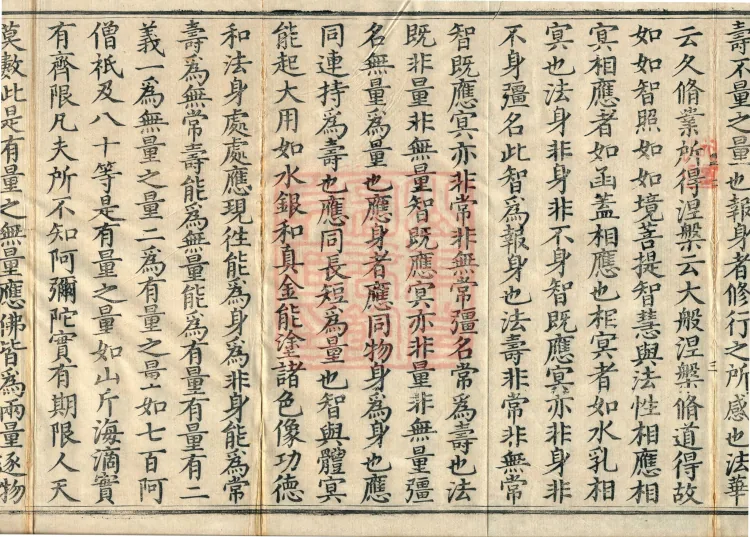 壽不量之量也報身者修行之所感也法華
云久脩業所得涅槃云大般涅槃脩道得故
如如智照如如境菩提智慧與法性相應相
冥相應者如函蓋相應也相冥者如水乳相
冥也法身非身非不身智既應冥亦非身非
不身彊名此智爲報身也法壽非常非無常
智既應冥亦非常非無常彊名常爲壽也法
既非量非無量智既應冥亦非量非無量彊
名無量爲量也應身者應同物身爲身也應
同連持爲壽也應同長短爲量也智與體冥
能起大用如水銀和真金能塗諸色像功德
和法身處處應現往能爲身爲非身能爲常
壽爲無常壽能爲無量能爲有量有量有二
義一爲無量之量二爲有量之量如七百阿
僧祇及八十等是有量之量如山斤海滴實
有齊限凡夫所不知阿彌陀實有期限人天
莫數此是有量之無量應佛皆爲兩量逐物
三